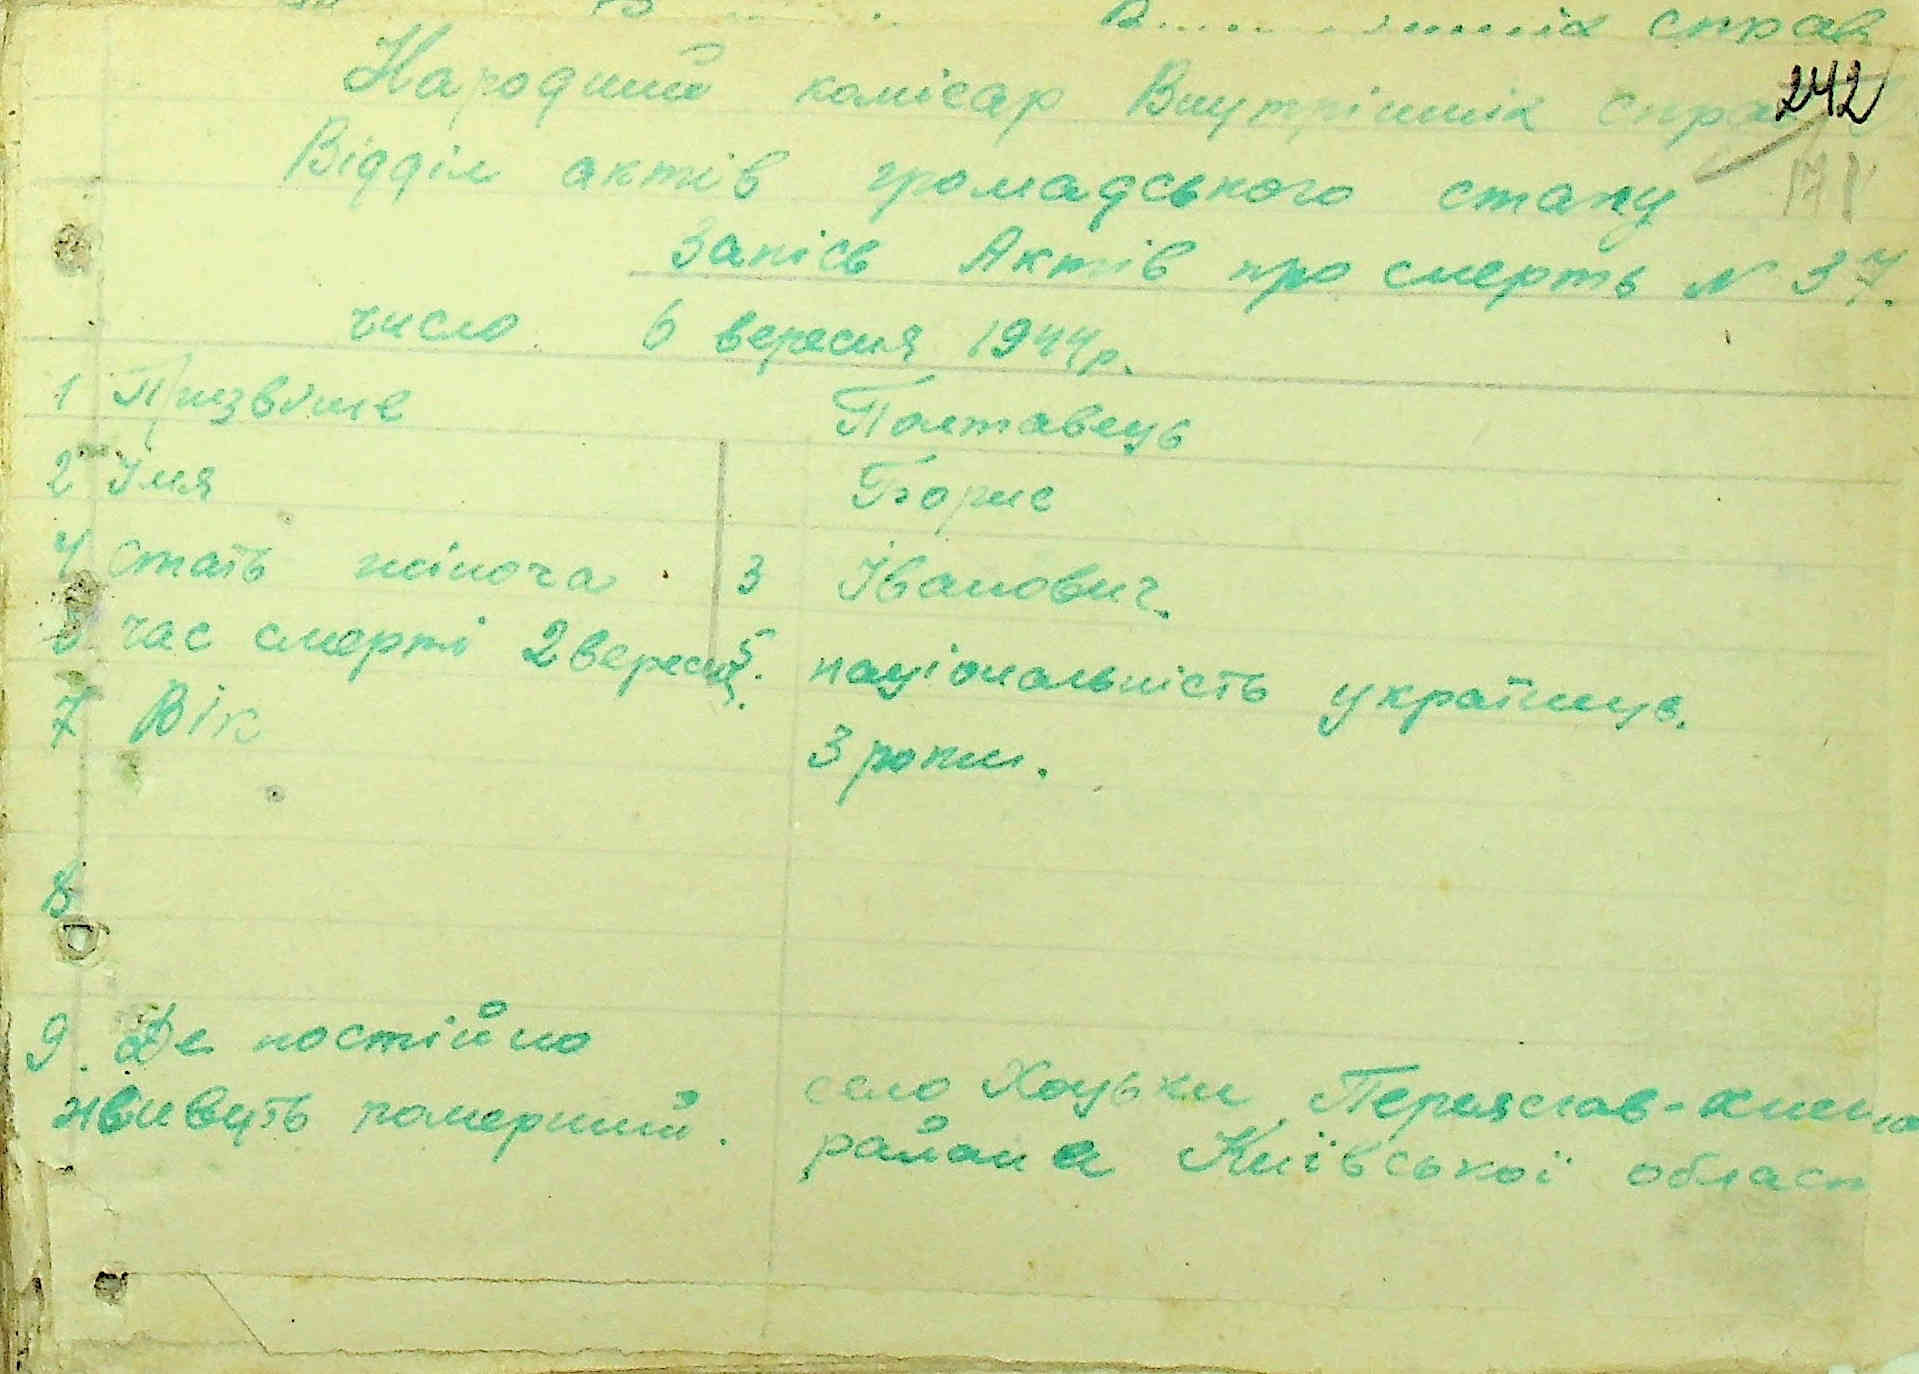 справ
Народний комісар Внутрішніх справ
242
Відділ актів громадського стану
178
Запісь Актів про смерть N 37.
число 6 вересня 1944р.
1 Призвіще Полтавець
2 Імя Борис
4 стать жіноча 3 Іванович.
5 час смерті 2 вересня. 5. національність українць.
7 Вік 3 роки.
8
9. Де постійно
живвуть померший. село Хоцьки Переяслав-
района Київської област